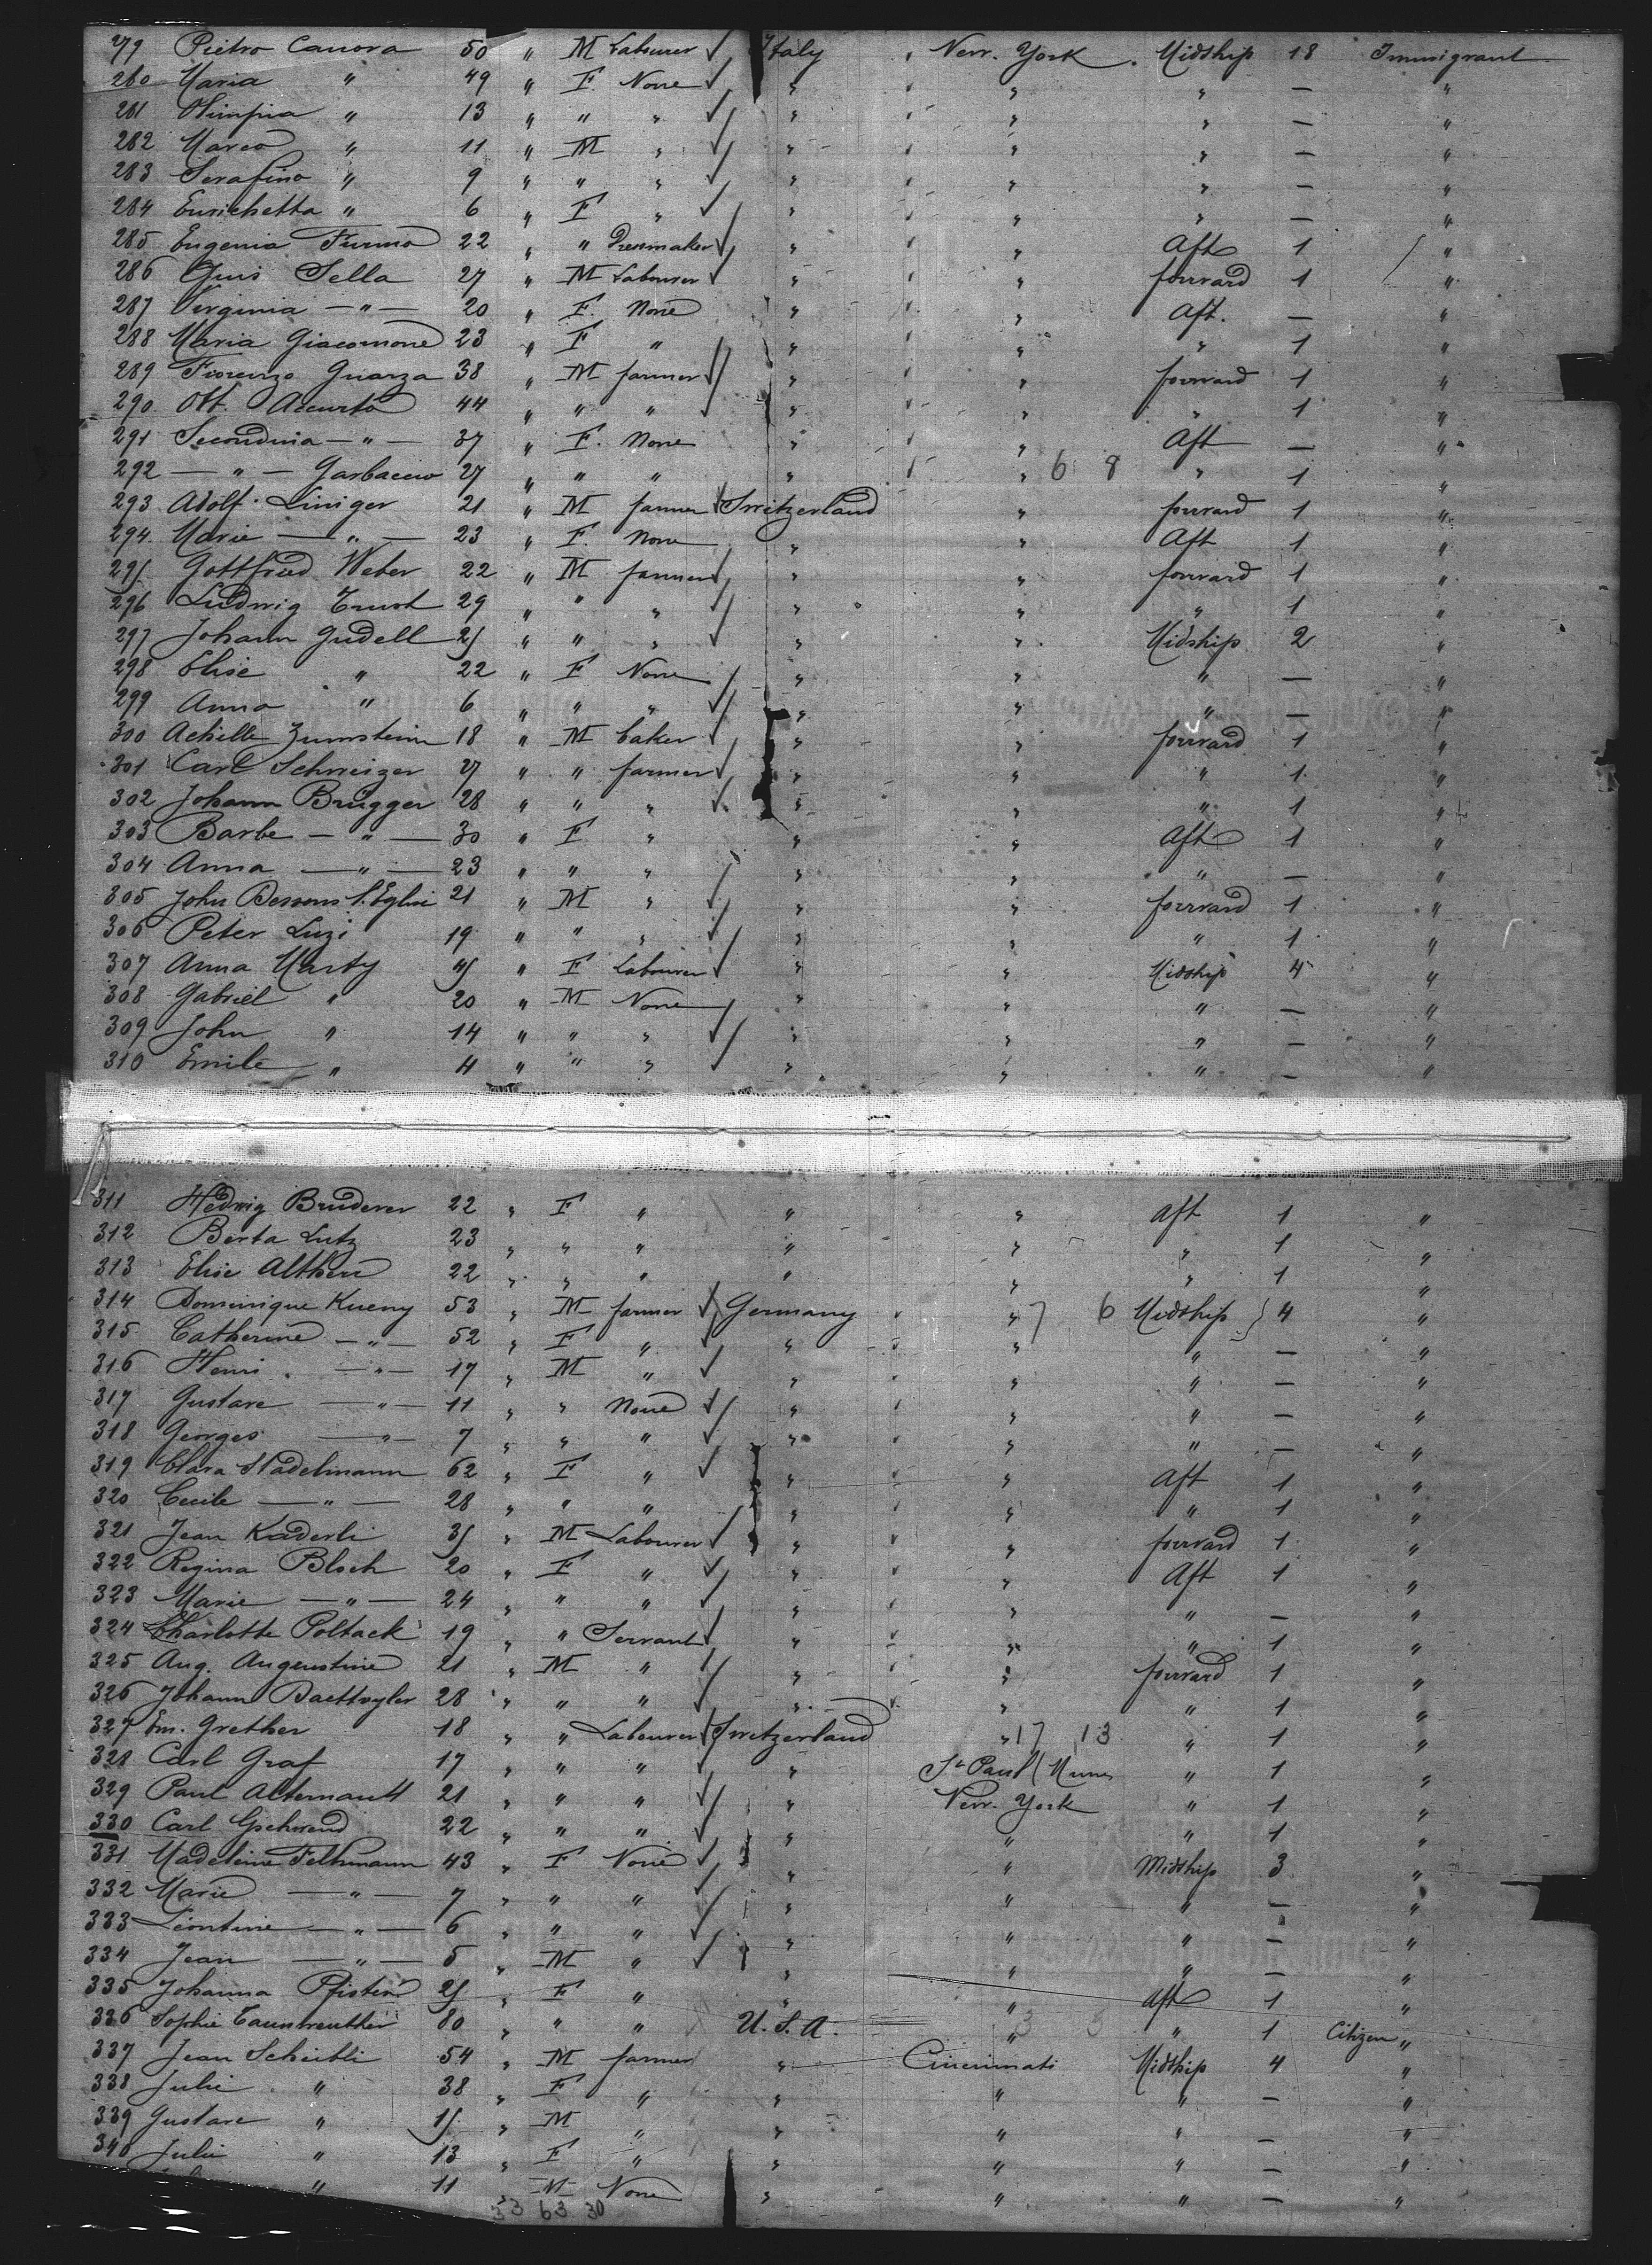 279 Pietro Canova 50 " M Labourer ✓ Italy " New. York . Midship 18 Immigrant
280 Maria " 49 " F. None ✓ " " " " — "
281 Olimpia " 13 " " " ✓ " " " " — "
282 Marco " 11 " M " ✓ " " " " — "
283 Serafino " 9 " " " ✓ " " " " — "
284 Enrichetta " 6 " F " ✓ " " " " — "
285 Eugenia Furno 22 " " Dressmaker ✓ " " " Aft 1 "
286 Sella 27 " M Labourer ✓ " " " forward 1 "
287 Virginia — " — 20 " F. None " " " Aft. — "
288 Maria Giacomone 23 " F " " " " " 1 "
289 Fiorenzo Guarza 38 " M farmer ✓ " " " forward 1 "
290. Ott. Accurto 44 " " " ✓ " " " " 1 "
291 Secondina — " — 37 " F. None " " " Aft — "
292 — " — Garbaccio 27 " " " " " " 6 8 " 1 "
293 Adolf. Liniger 21 " M farmer ✓ Switzerland " forward 1 "
294. Marie — " — 23 " F. None " " Aft 1 "
295 Gottfried Weber 22 " M farmer ✓ " " forward 1 "
296 Ludwig Trush 29 " " " ✓ " " " 1 "
297 Johann Gudell 25 " " " ✓ " " Midship 2 "
298 Elise " 22 " F None ✓ " " " — "
299 Anna " 6 " " " ✓ " " " — "
300 Achille Zumsteinn 18 " M baker ✓ " " forward 1 "
301 Carl Schweizer 27 " " farmer ✓ " " " 1 "
302 Johann Brugger 28 " " " ✓ " " " 1 "
303 Barbe — " — 30 " F " " " Aft 1 "
304 Anna — " — 23 " " " " " " — "
305 John 21 " M " ✓ " " forward 1 "
306 Peter Luzi 19 " " " ✓ " " " 1 "
307 Anna Marty 45 " F Labourer ✓ " " Midship 4 "
308 Gabriel " 20 " M None " " " — "
309 John " 14 " " " ✓ " " " — "
310 Emile " 4 " " " ✓ " " " — "
311 Hedwig Bruderer 22 " F " " " Aft 1 "
312 Berta Lutz 23 " " " " " " 1 "
313 Elise Altherr 22 " " " " " " 1 "
314 Dominique Kueny 53 " M farmer ✓ Germany " " 7 6 Midship } 4 "
315 Catherine — " — 52 " F " ✓ " " " " — "
316 Henri . — " — 17 " M " ✓ " " " " — "
317 Gustave — " — 11 " " None ✓ " " " " — "
318 Georges — " — 7 " " " ✓ " " " " — "
319 Clara Stadelmann 62 " F " ✓ " " " Aft 1 "
320 Cecile — " — 28 " " " " " " " 1 "
321 Jean Kaderli 35 " M Labourer ✓ " " " forward 1 "
322 Regina Bloch 20 " F " ✓ " " " Aft 1 "
323 Marie — " — 24 " " " ✓ " " " " — "
324 Charlotte Poltack 19 " " Servant ✓ " " " " 1 "
325 Aug. Augenstine 21 " M " ✓ " " " forward 1 "
326 Johann 28 " " " ✓ " " " " 1 "
327 Em. Grether 18 " " Labourer ✓ Switzerland " 17 13 " 1 "
328 Carl Graf 17 " " " ✓ " St Paul " 1 "
329 Paul Altermatt 21 " " " ✓ " New. York " 1 "
330 Carl Gschwend 22 " " " ✓ " " " 1 "
331 Madeleine Feltmann 43 " F None ✓ " " Midship 3 "
332 Marie — " — 7 " " " ✓ " " " — "
333 Leontine — " — 6 " " " ✓ " " " — "
334 Jean — " — 5 " M " ✓ " " " — "
335 Johanna Pfister 25 " F " " " Aft 1 "
336 Sophie 80 " " " U. S. A. " 3 3 " 1 Citizen "
337 Jean Scheibli 54 " M farmer " Cincinnati Midship 4 "
338 Julie " 38 " F " " " " — "
339 Gustave " 15 " M " " " " — "
340 Julie " 13 " F " " " " — "
" 11 M None " " " — "
33 63 30